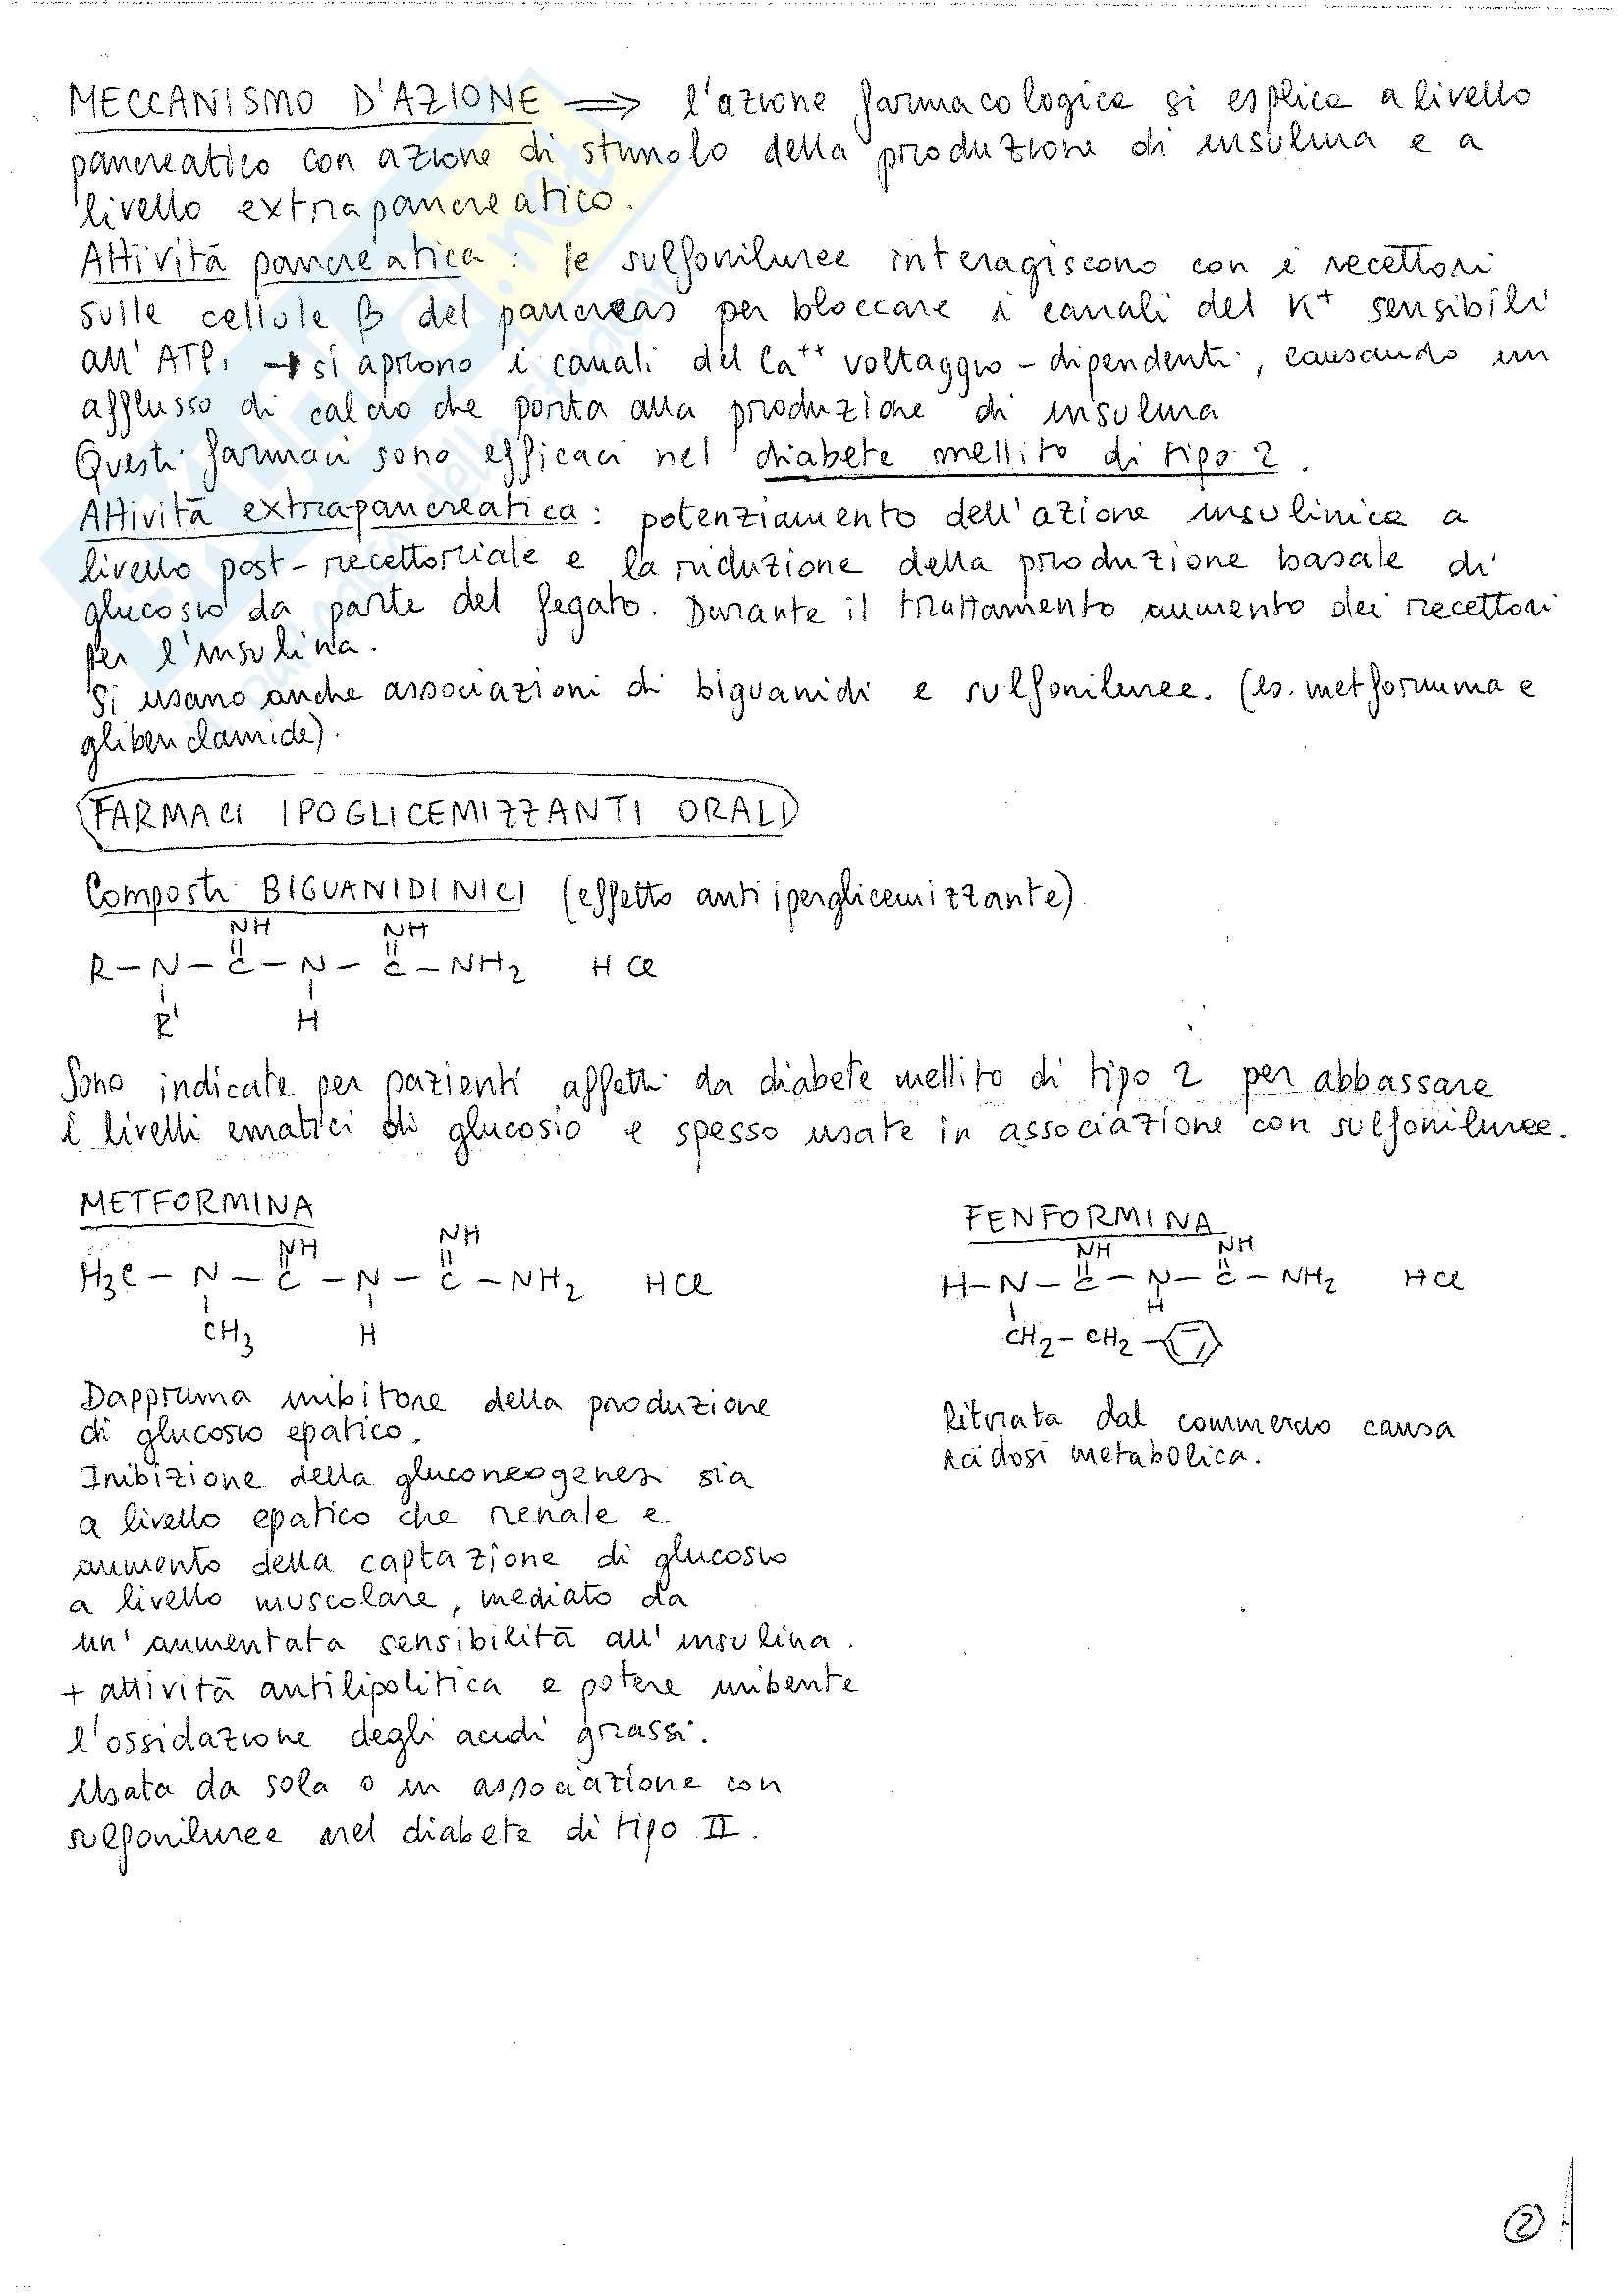 MECCANISMO D'AZIONE ⟹ l'azione farmacologica si esplica a livello
pancreatico con azione di stimolo della produzione di insulina e a
livello extrapancreatico.
Attività pancreatica : le sulfoniluree interagiscono con i recettori
sulle cellule β del pancreas per bloccare i canali del K+ sensibili
all'ATP, → si aprono i canali del Ca++ voltaggio-dipendenti, causando un
afflusso di calcio che porta alla produzione di insulina
Questi farmaci sono efficaci nel diabete mellito di tipo 2.
Attività extrapancreatica : potenziamento dell'azione insulinica a
livello post-recettoriale e la riduzione della produzione basale di
glucosio da parte del fegato. Durante il trattamento aumento dei recettori
per l'insulina.
Si usano anche associazioni di biguanidi e sulfoniluree. (es. metformina e
glibenclamide).
FARMACI IPOGLICEMIZZANTI ORALI
Composti BIGUANIDINICI (effetto antiiperglicemizzante)
NH NH
R-N-C-N-C-NH2 HCl
R' H
Sono indicate per pazienti affetti da diabete mellito di tipo 2 per abbassare
i livelli ematici di glucosio e spesso usate in associazione con sulfoniluree.
METFORMINA
NH NH
H3C-N-C-N-C-NH2 HCl
CH3 H
Dapprima inibitore della produzione
di glucosio epatico.
Inibizione della gluconeogenesi sia
a livello epatico che renale e
aumento della captazione di glucosio
a livello muscolare, mediato da
un'aumentata sensibilità all'insulina.
+ attività antilipolitica e potere inibente
l'ossidazione degli acidi grassi.
Usata da sola o in associazione con
sulfoniluree nel diabete di tipo II.
FENFORMINA
NH NH
H-N-C-N-C-NH2 HCl
H
CH2-CH2-
Ritirata dal commercio causa
acidosi metabolica.
2